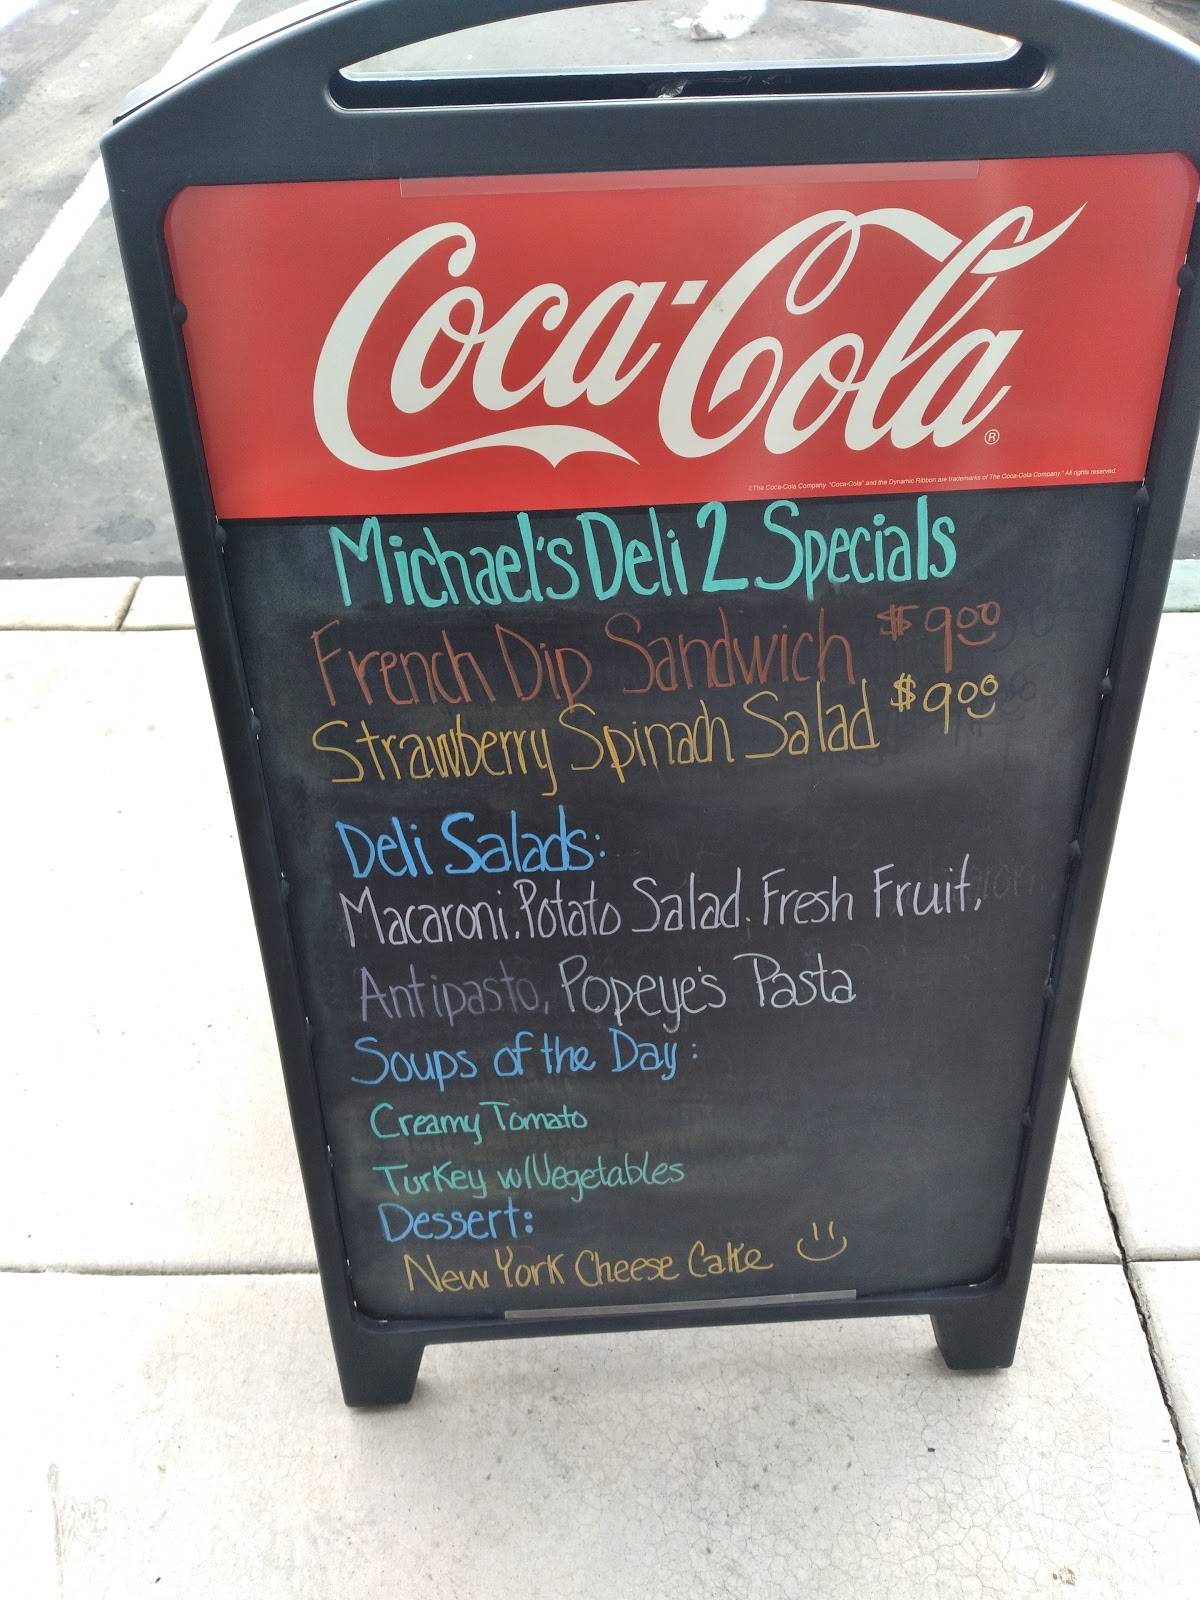 Coca-Cola
®
©The Coca-Cola Company. "Coca-Cola" and the Dynamic Ribbon are trademarks of The Coca-Cola Company." All rights reserved.
Michael's Deli 2 Specials
French Dip Sandwich $9.00
Strawberry Spinach Salad $9.00
Deli Salads:
Macaroni, Potato Salad. Fresh Fruit,
Antipasto, Popeye's Pasta
Soups of the Day:
Creamy Tomato
Turkey w/Vegetables
Dessert:
New York Cheese Cake